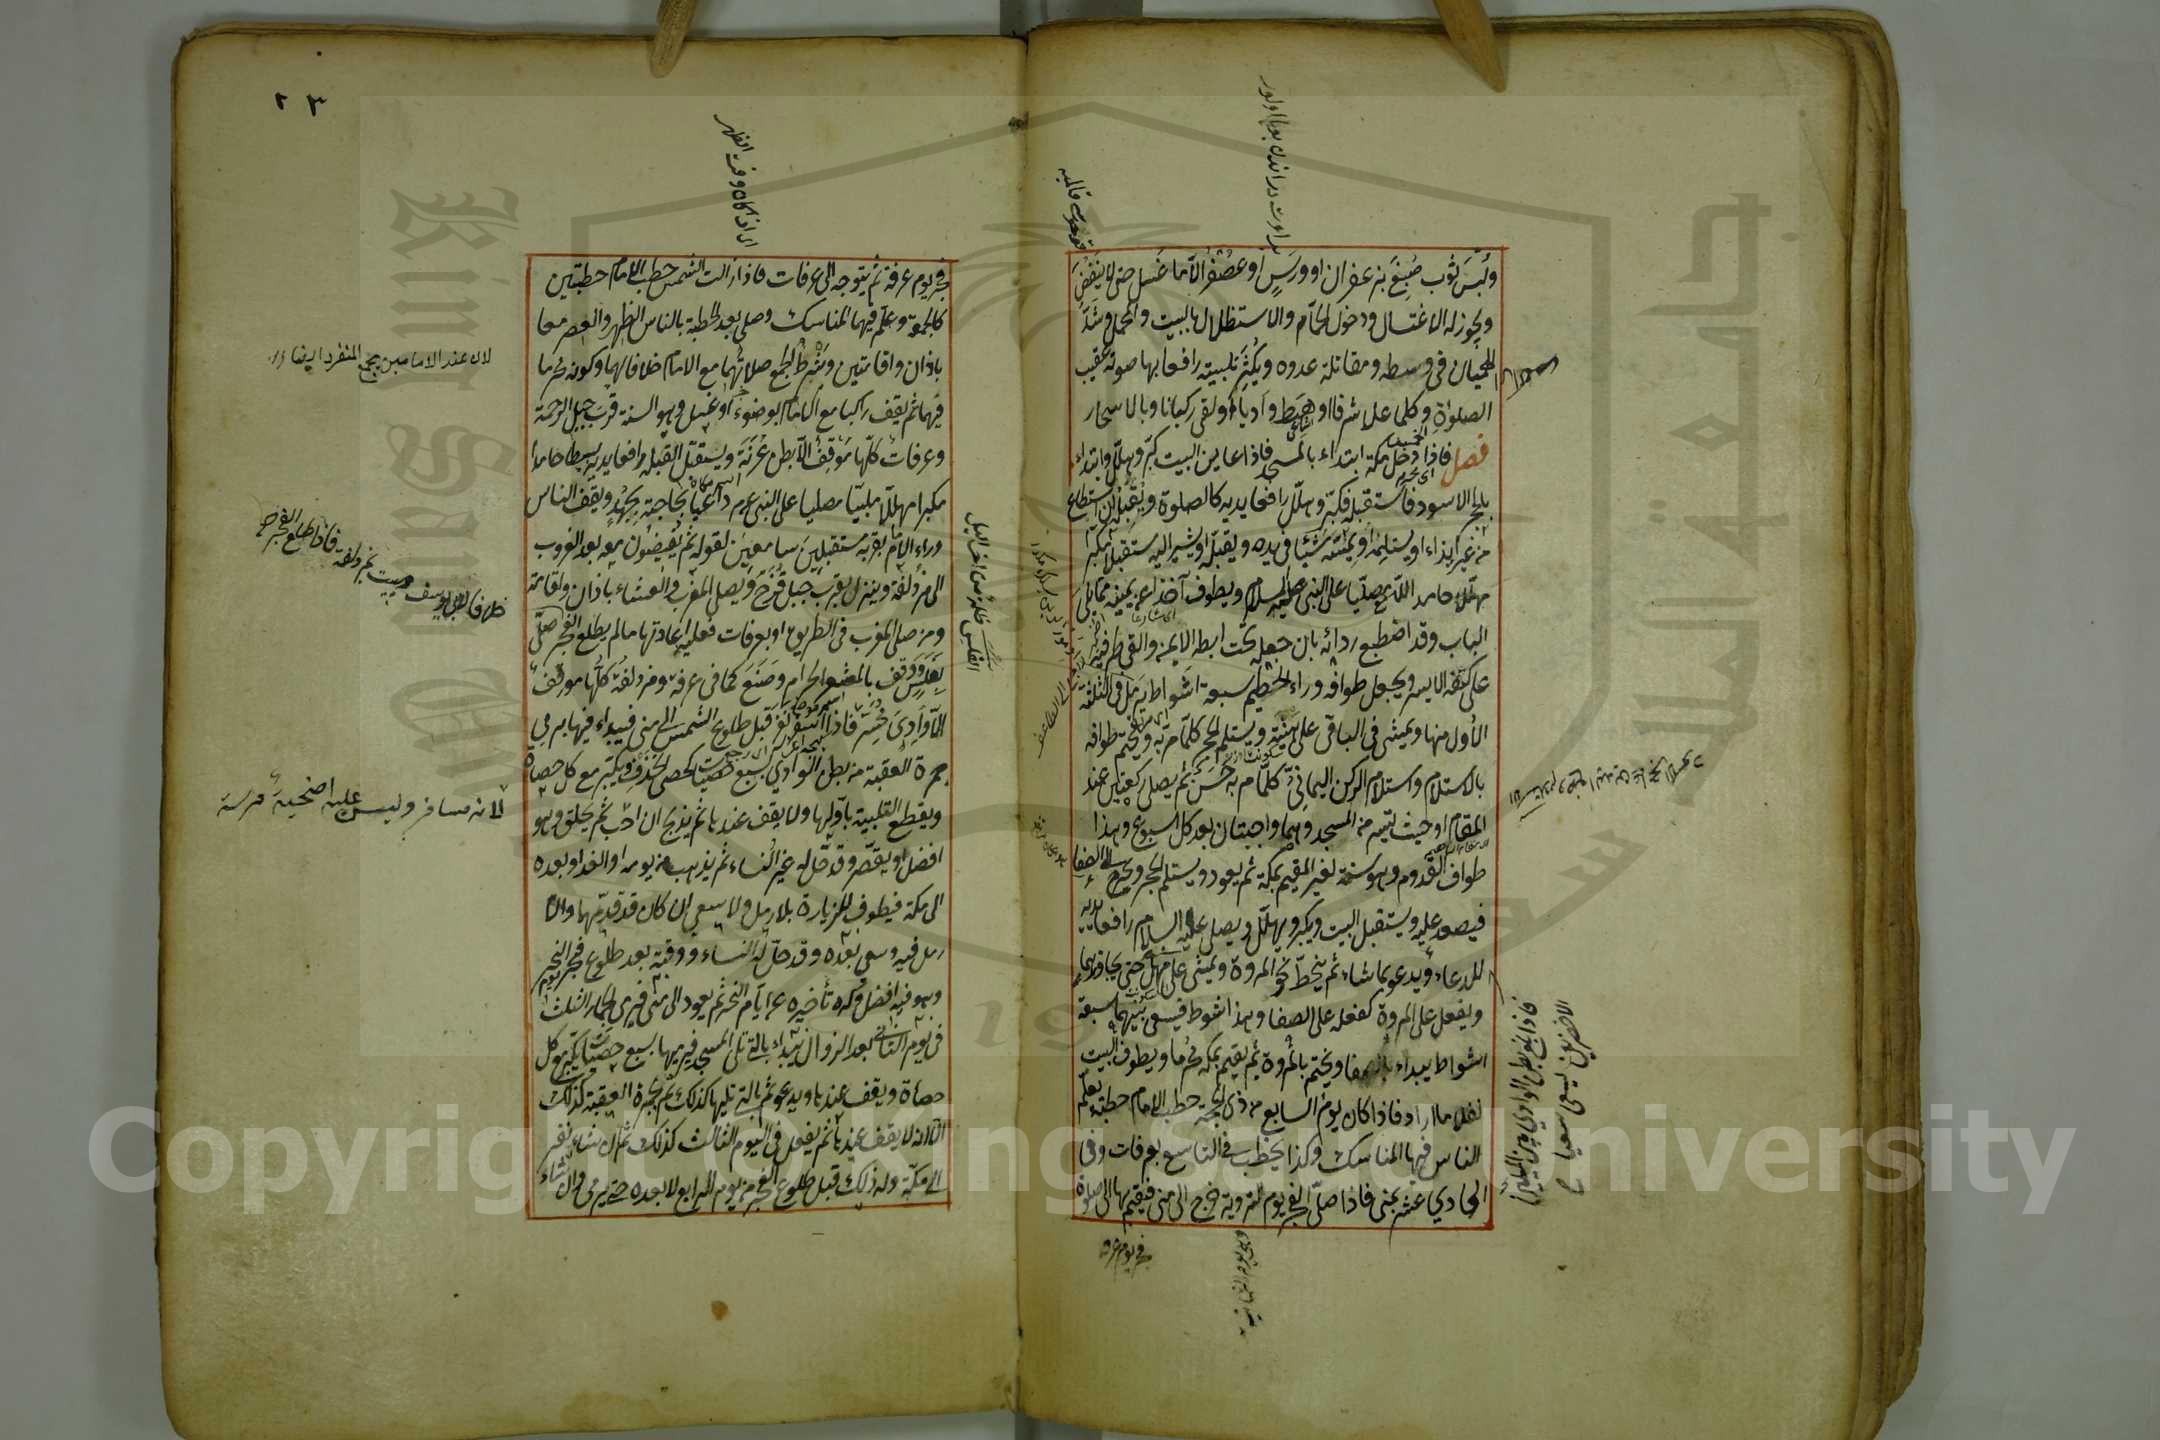 ولبس ثوب صبغ بزعفران او ورس او عصفر الا ما غسل حتى لا ينفض
ويجوز له الاغتسال ودخول الحمام والاستظلال بالبيت والمحمل وشد
الهميان في وسطه ومقاتلة عدوه ويكثر تلبيته رافعا بها صوته عقيب
الصلوة وكلما علا شرفا او هبط واديا او لقي ركبانا وبالاسحار
فصل فاذا دخل مكة ابتداء بالمسجد فاذا عاين البيت كبر وهلل وابتداء
بالحجر الاسود فاستقبله فكبر وهلل رافعا يديه كالصلوة ويقبله ان استطاع
من غير ايذاء او يستلمه او يمسه شيئا في يده ويقبله او يشير اليه مستقبلا مكبرا
مهللا حامدا لله تع مصليا على النبي عليه السلام ويطوف آخذا عن يمينه مما يلي
الباب وقد اضطبع ردائه بان جعله تحت ابطه الايمن والقى طرفيه
على كتفه الايسر ويجعل طوافه وراء الحطيم سبعة اشواط يرمل في الثلثة
الأول منها ويمشي في الباقي على هينته ويستلم الحجر كلما مر به ويختم طوافه
بالاستلام واستلام الركن اليماني كلما مر به حسن ثم يصلي ركعتين عند
المقام او حيث تيسر من المسجد وهما واجبتان بعد كل اسبوع وهذا
طواف القدوم وهو سنة لغير المقيم بمكة ثم يعود ويستلم الحجر ويخرج الى الصفا
فيصعد عليه ويستقبل البيت ويكبر ويهلل ويصلي عليه السلام رافعا يديه
للدعاء ويدعو بما شاء ثم ينحط نحو المروة ويمشي على مهل حتى يحاذيهما
ويفعل على المروة كفعله على الصفا وهذا شوط فيسعى بينهما سبعة
اشواط يبداء بالصفا ويختم بالمروة ثم يقيم بمكة محرما ويطوف بالبيت
نفلا ما اراد فاذا كان يوم السابع من ذي الحجة خطب الامام خطبة يعلم
الناس فيها المناسك وكذا يخطب في التاسع بعرفات وفي
الحادي عشر بمنى فاذا صلى الفجر يوم التروية خرج الى منى فيقيم بها الى صلوة
فجر يوم عرفة
فاذا بلغ بطن الوادي بين الميلين
الاخضرين يسعى سعيا
٢٣
فجر يوم عرفة ثم يتوجه الى عرفات فاذا زالت الشمس خطب الامام خطبتين
كالجمعة وعلم فيهما المناسك وصلى بعد الخطبة بالناس الظهر والعصر معا
باذان واقامتين وشرط الجمع صلاتهما مع الامام خلافا لهما وكونه محرما
فيهما ثم يقف راكبا مع الامام بوضوء او غسل وهو السنة قرب جبل الرحمة
وعرفات كلها موقف الا بطن عرنة ويستقبل القبلة رافعا يديه بسطا حامدا
مكبرا مهللا ملبيا مصليا على النبي عم داعيا بحاجته بجهد ويقف الناس
وراء الامام بقربه مستقبلين سامعين لقوله ثم يفيضون معه بعد الغروب
الى مزدلفة وينزل بقرب جبل قزح ويصلي المغرب والعشاء باذان واقامة
ومن صلى المغرب في الطريق او بعرفات فعليه اعادتها ما لم يطلع الفجر صلى
بغلس ووقف بالمشعر الحرام وصنع كما في عرفة ومزدلفة كلها موقف
الا وادي محسر فاذا اسفر نفر قبل طلوع الشمس الى منى فيبداء فيها برمي
جمرة العقبة من بطن الوادي بسبع حصيات كحصى الخذف ويكبر مع كل حصاة
ويقطع التلبية باولها ولا يقف عندها ثم يذبح ان احب ثم يحلق وهو
افضل او يقصر وقد حل له غير النساء ثم يذهب من يومه او الغد او بعده
الى مكة فيطوف للزيارة بلا رمل ولا سعي ان كان قد قدمهما والا
رمل فيه وسعى بعده وقد حل له النساء ووقته بعد طلوع فجر النحر
وهو فيه افضل وكره تأخيره عن ايام النحر ثم يعود الى منى فيرمي الجمار الثلث
في يوم الثاني بعد الزوال يبداء بالتي تلي المسجد فيرميها بسبع حصيات يكبر مع كل
حصاة ويقف عندها ويدعو ثم بالتي تليها كذلك ثم بجمرة العقبة كذلك
الا انه لا يقف عندها ثم يفعل في اليوم الثالث كذلك ثم ان شاء نفر
الى مكة وله ذلك قبل طلوع الفجر من يوم الرابع لا بعده حتى يرمي وان شاء
لان عند الامامين يجمع المنفرد ايضا
ويبيت بمزدلفة فاذا طلع الفجر
خلافا لابي يوسف
لانه مسافر وليس عليه اضحية
الغلس ظلمة من آخر الليل
Copyright © King Saud University
King Saud University
جامعة الملك سعود